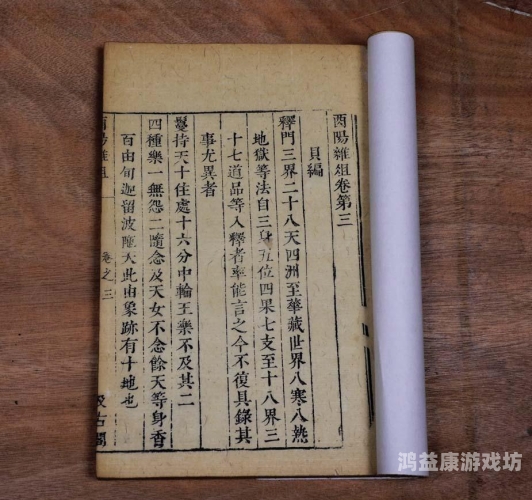 酉陽雜俎卷第三
貝編
釋門三界二十八天四洲至華藏世界八寒八熱
地獄等法自三身五位四果七支至十八界三
十七道品等入釋者率能言之今不復具錄其
事尤異者
鬘持天十住處十六分中輪王樂不及其二
四種樂一無怨二隨念及天女不念餘天等身香
百由旬迦留波陁天此由象跡有十地也
酉陽雜俎
卷之三
汲古閣
鸿益康游戏坊